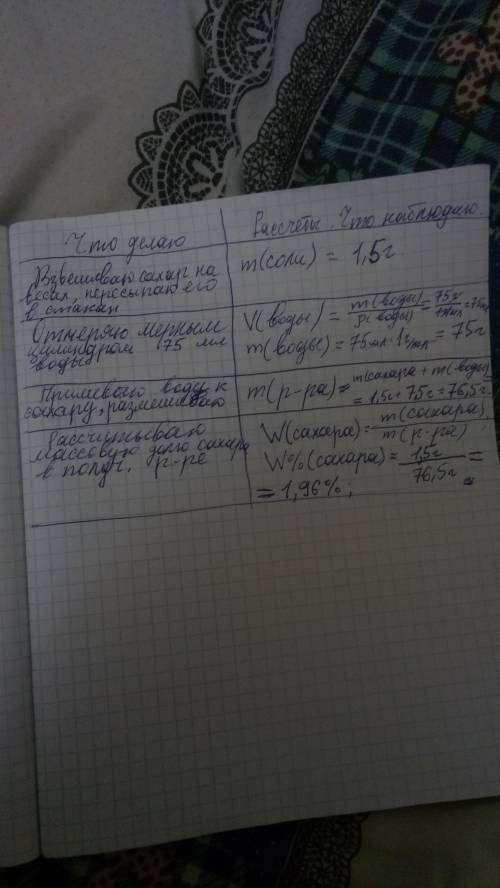 Что делаю
Рассчеты. Что наблюдаю.
Взвешиваю сахар на
весах, пересыпаю его
в стакан
m(соли) = 1,5г.
Отмеряю мерным
цилиндром 75 мл
воды
V(воды) = m(воды)/ρ(воды) = 75г/1г/мл = 75мл
m(воды) = 75мл · 1г/мл = 75г
Приливаю воду к
сахару, размешиваю
m(р-ра) = m(сахара + m(воды) =
= 1,5г + 75г = 76,5г.
Рассчитываю
массовую долю сахара
в получ. р-ре
W(сахара) = m(сахара)/m(р-ра)
W%(сахара) = 1,5г/76,5г =
= 1,96%;